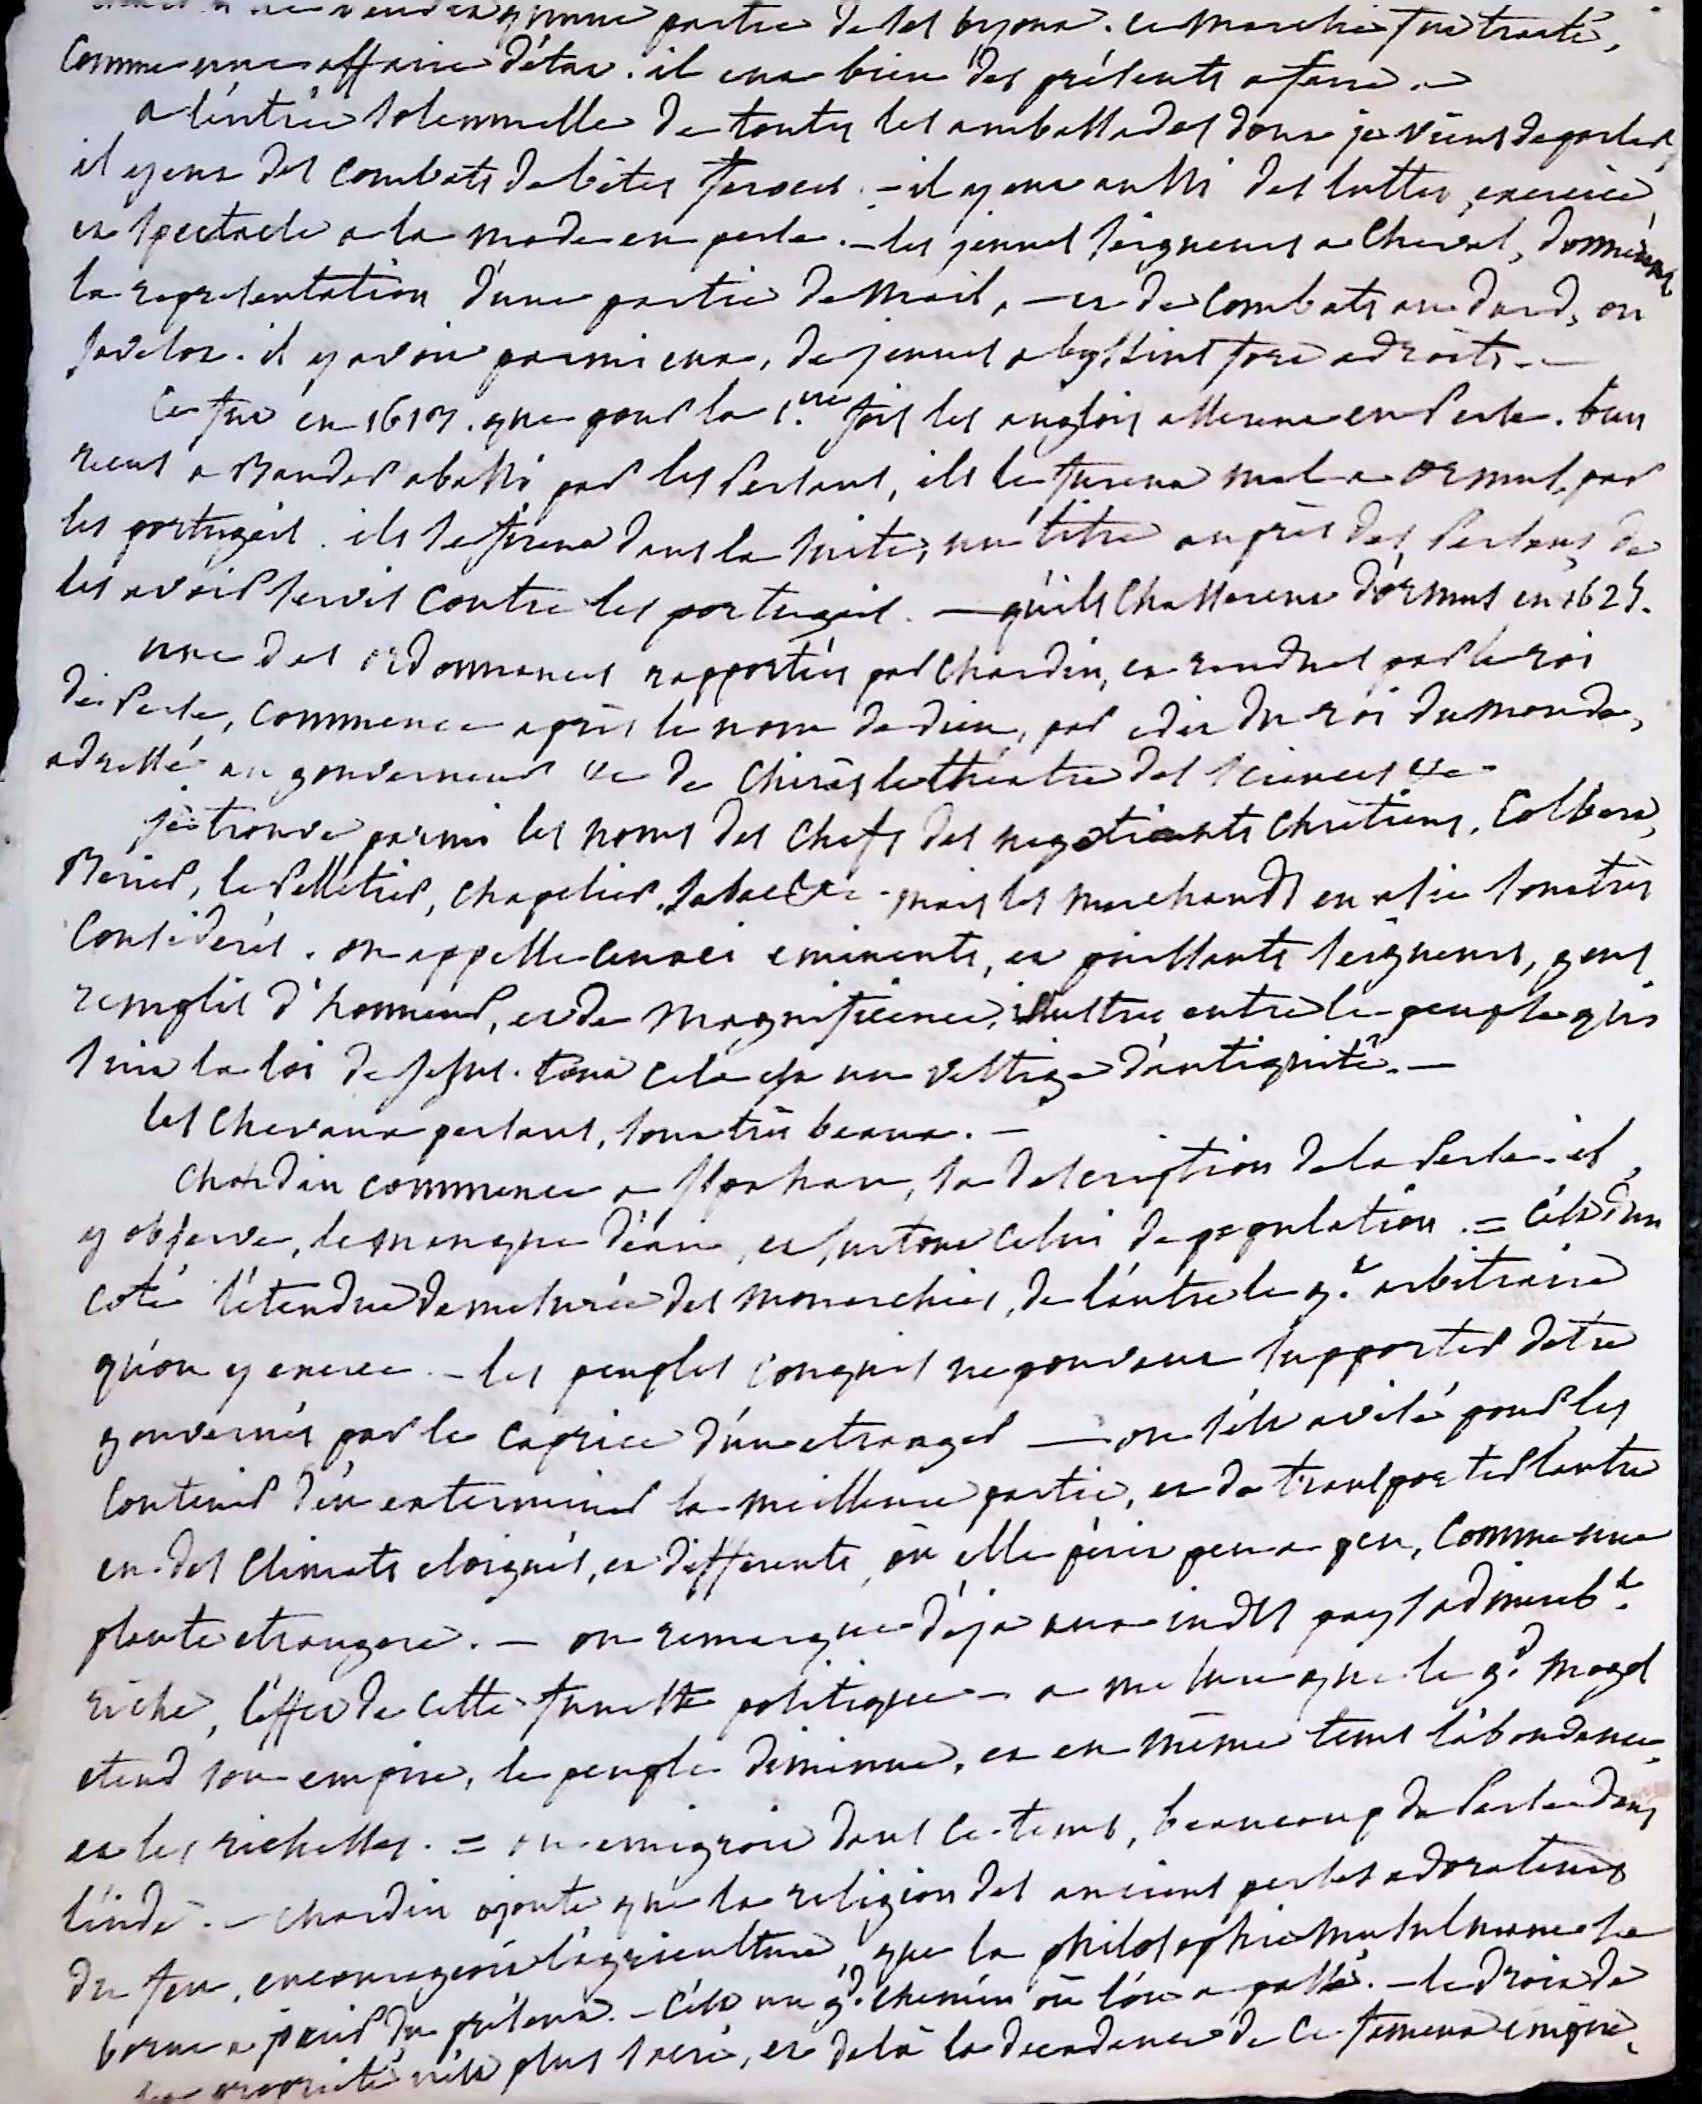 vendre qu'une partie de ses bijoux. ce marché fut traité,
comme une affaire d'état. il eut bien des présents a faire. —
a l'éntrée solemnelle de toutes les ambassades dont je viens de parler,
il y eut des combats de bêtes feroces. — il y eut aussi des luttes, exercice,
et spectacle a la mode en perse. — les jeunes seigneurs a cheval, donnèrent
la representation d'une partie de mail, — et de combats au dard, ou
javelot. il y avoit parmi eux, de jeunes abyssins fort adroits. —
Ce fut en 1613. que pour la 1.ere fois les anglois allerent en Perse. bien
recus a Bander abassi par les Persans, ils le furent mal a ormus, par
les portugais. ils se firent dans la suite, un titre auprès des Persans, de
les avoir servis contre les portugais. — qu'ils chasserent d'ormus en 1625.
une des ordonnances rapportées par Chardin, et rendues par le roi
de Perse, commence après le nom de dieu, par edit du roi du monde,
adressé au gouverneur &c de Chiras le théatre des sciences &c —
je trouve parmi les noms des chefs des negotiants chrétiens, Colbert,
Berier, le Pelletier, Chapelier, &c — mais les marchands en asie sont très
considerés. on appelle ceux ci eminents, et puissants seigneurs, gens
remplis d'honneur, et de magnificence, illustres entre le peuple qui
suit la loi de Jesus. tout cela est un vestige d'antiquité. —
les chevaux persans, sont très beaux. —
Chardin commence a Ispahan, sa description de la Perse. il
y observe, le manque d'eau, et surtout celui de population. = c'ést d'un
coté l'étendue demesurée des monarchies, de l'autre le g.t arbitraire
qu'on y exerce. — les peuples conquis ne pouvant supporter d'etre
gouvernés par le caprice d'un etranger — on s'ést avisé pour les
contenir d'en exterminer la meilleure partie, et de transporter l'autre
en des climats eloignés, et differents, où elle périt peu a peu, comme une
plante etrangere. — on remarque déja aux indes pays admirab.t
riche, l'effet de cette funeste politique — a mesure que le g.d mogol
etend son empire, le peuple diminue, et en même tems l'abondance,
et les richesses. = on emigroit dans ce tems, beaucoup de Perse dans
l'inde. — Chardin ajoute que la religion des anciens perses adorateurs
du feu, encourageoit l'agriculture, que la philosophie musulmane se
borne a jouir du présent. — c'ést un g.d chemin où l'on a passé. — le droit de
propriété n'ést plus sacré, et de là la decadence de ce fameux empire,